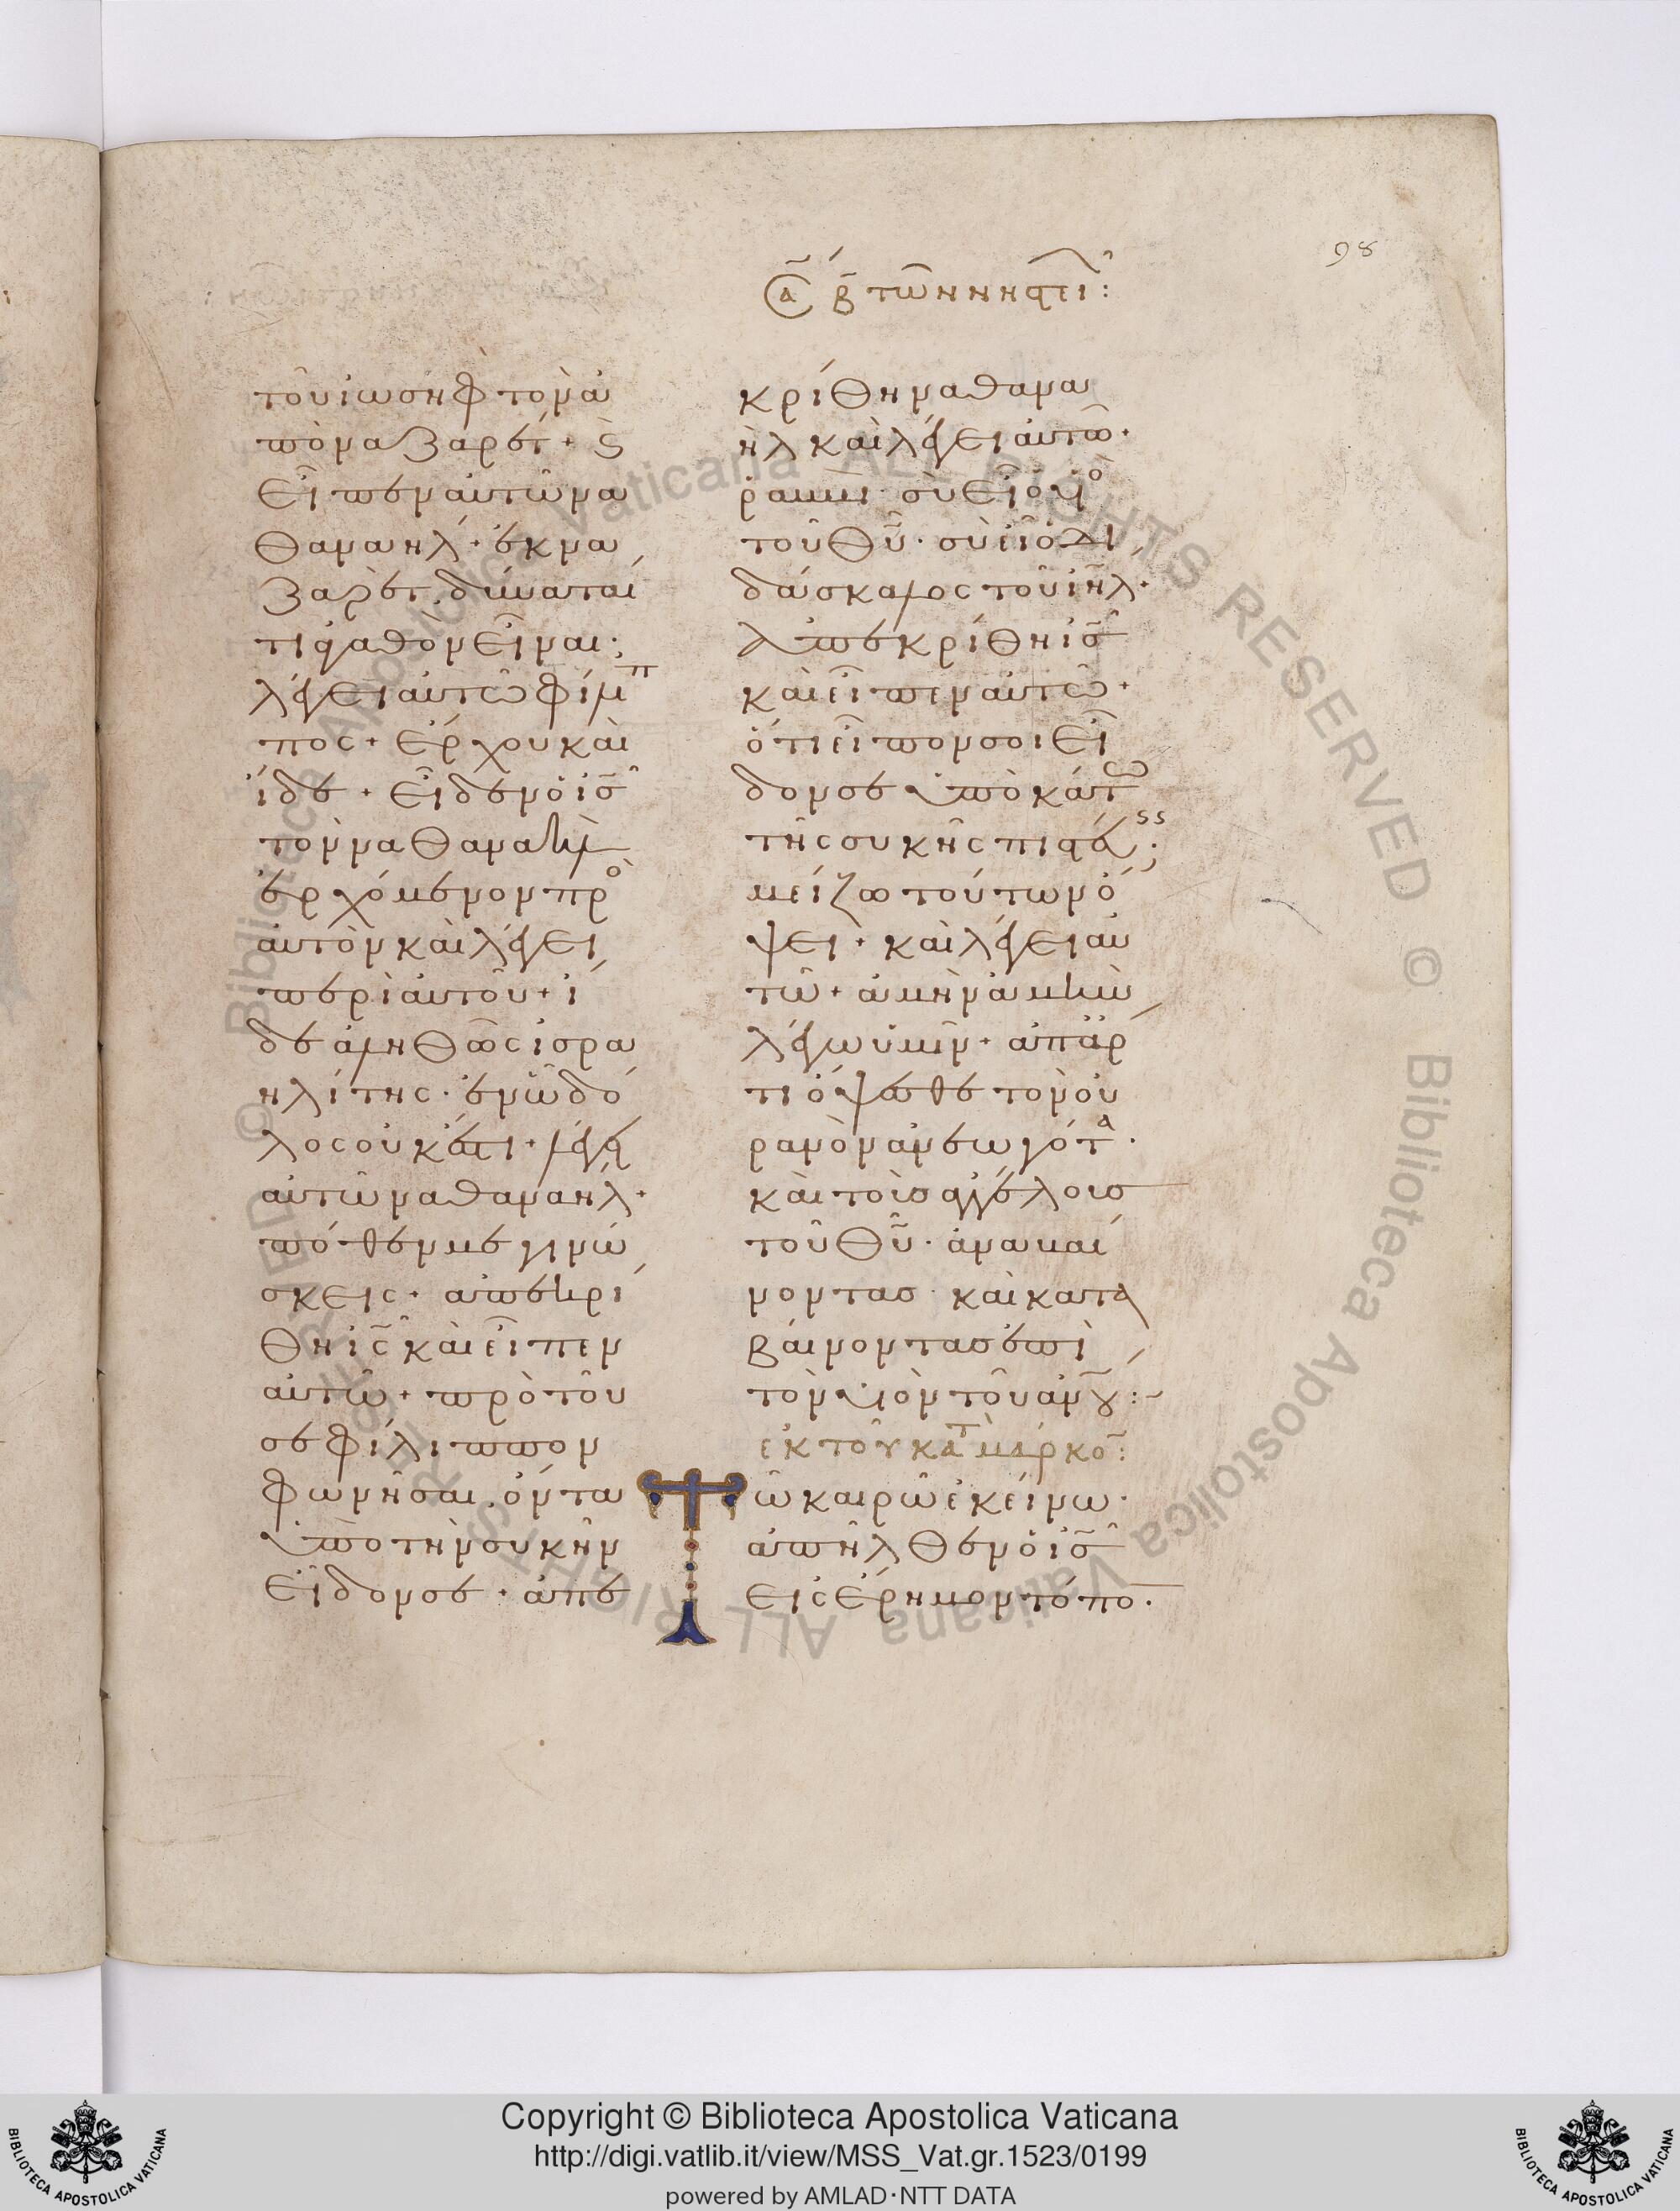 98
σα̅ β̅ τῶν νηστει:
τοῦ ἰωσὴφ τὸν ἀ
πὸ ναζαρέτ· ϛ̀
εἶπεν αὐτῶ να
θαναήλ· ἐκ να
ζαρὲτ δύναταί
τι ἀγαθὸν εἶναι;
λέγει αὐτῶ φίλιπ
πος· ἔρχου καὶ
ἴδε· εἶδεν ὁ ι̅ς̅
τὸν ναθαναὴλ
ἐρχόμενον πρὸ
αὐτὸν καὶ λέγει
περὶ αὐτοῦ· ἴ
δε ἀληθῶς ἰσρα
ηλίτης· ἐν ὧ δό
λος οὐκ ἔστι· λέγει
αὐτῶ ναθαναήλ·
πόθεν με γινώ
σκεις· ἀπεκρί
θη ι̅ς̅ καὶ εἶπεν
αὐτῶ· πρὸ τοῦ
σε φίλιππον
φωνῆσαι ὄντα
ὑπὸ τὴν συκῆν
εἶδον σε· ἀπε
κρίθη ναθανα
ὴλ καὶ λέγει αὐτῶ·
ῥαββι· σὺ εἶ ὁ υἱὸ
τοῦ θ̅υ̅· σὺ εἶ ὁ δι
δάσκαλος τοῦ ι̅η̅λ̅·
ἀπεκρίθη ι̅ς̅
καὶ εἶπεν αὐτῶ·
ὅτι εἶπον σοι εἶ
δον σε ὑποκάτω
τῆς συκῆς πιστεύεις;
μείζω τούτων ὄ
ψει· καὶ λέγει αὐ
τῶ· ἀμὴν ἀμὴν
λέγω ὑμῖν· ἀπ ἄρ
τι ὄψεσθε τὸν οὐ
ρανὸν ἀνεωγότα·
καὶ τοὺσ ἀγγέλουσ
τοῦ θ̅υ̅· ἀναβαί
νοντασ καὶ κατα
βαίνοντασ ἐπὶ
τὸν υἱὸν τοῦ ἀν̅ου:~
ἐκ τοῦ κατ̀ μάρκο̅:
Τῶ καιρῶ ἐκείνω·
ἀπῆλθεν ὁ ι̅ς̅
εἰς ἔρημον τόπο̅·
Copyright © Biblioteca Apostolica Vaticana
http://digi.vatlib.it/view/MSS_Vat.gr.1523/0199
powered by AMLAD·NTT DATA
BIBLIOTECA APOSTOLICA VATICANA
BIBLIOTECA APOSTOLICA VATICANA
© Biblioteca Apostolica Vaticana ALL RIGHTS RESERVED © Biblioteca Apostolica Vaticana ALL RIGHTS RESERVED